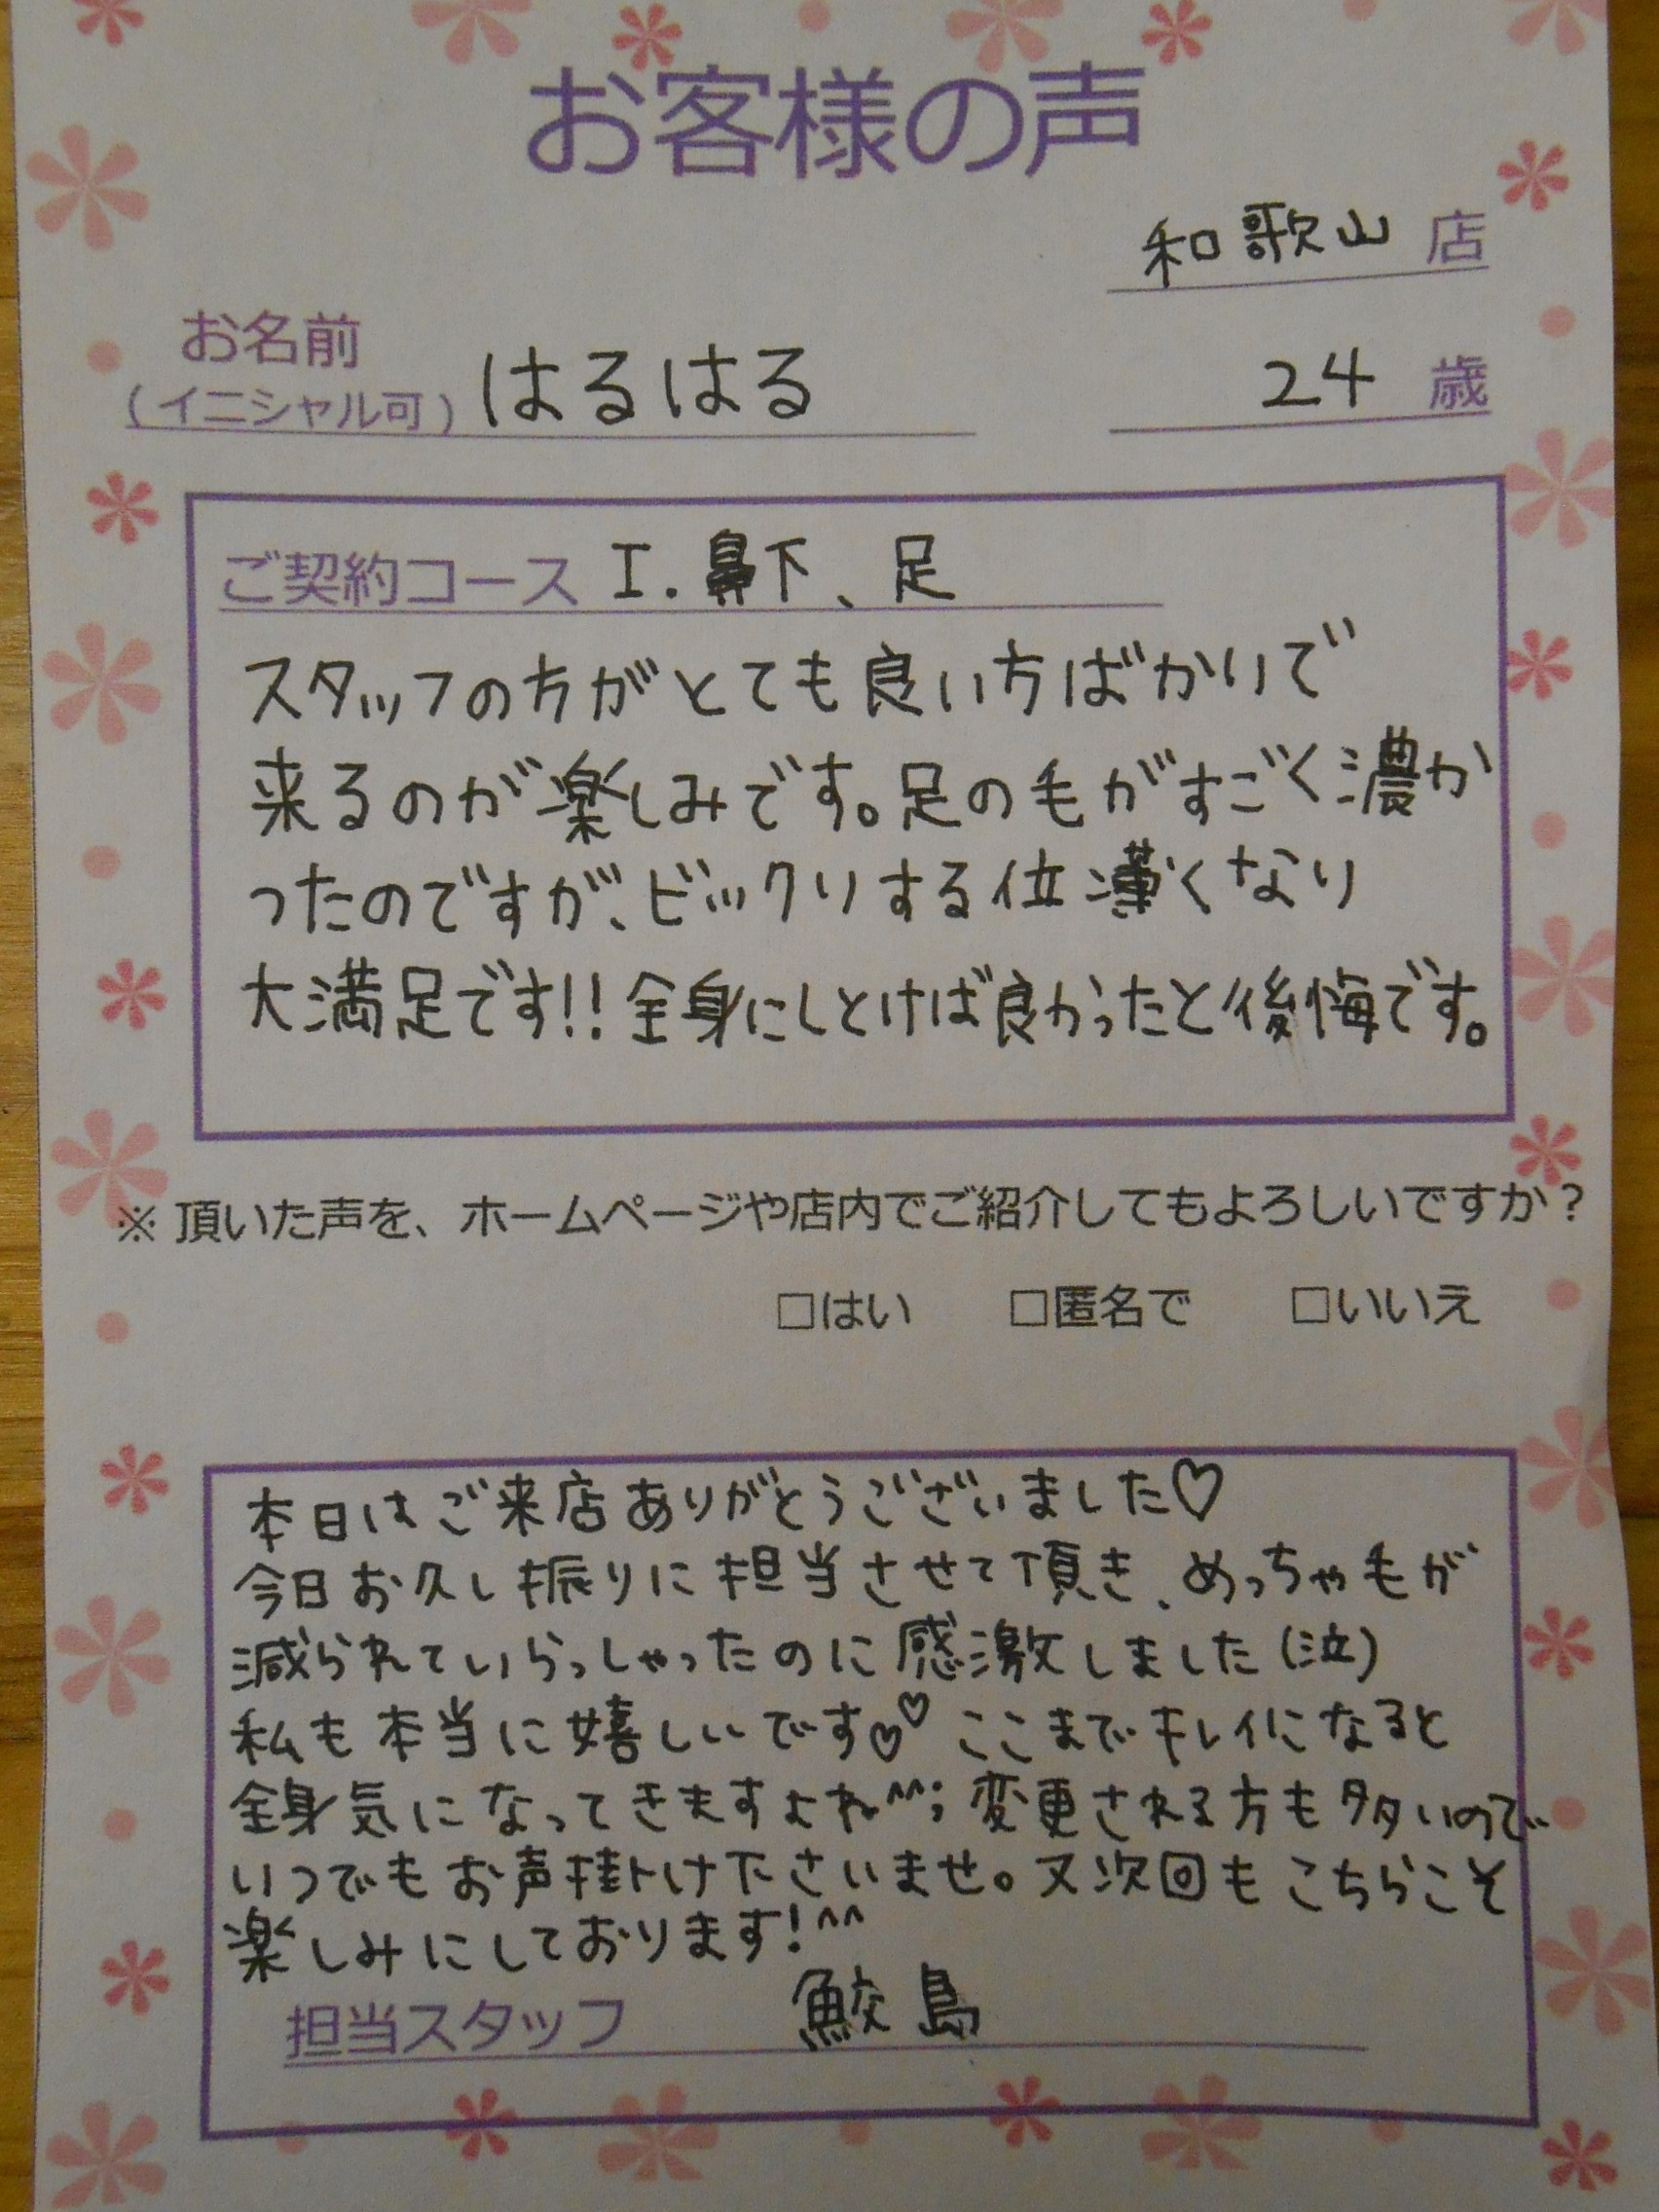 お客様の声
和歌山 店
お名前
(イニシャル可) はるはる
24 歳
ご契約コース I.鼻下、足
スタッフの方がとても良い方ばかりで
来るのが楽しみです。足の毛がすごく濃か
ったのですが、ビックリする位薄くなり
大満足です!!全身にしとけば良かったと後悔です。
※頂いた声を、ホームページや店内でご紹介してもよろしいですか?
□はい □匿名で □いいえ
本日はご来店ありがとうございました♡
今日お久し振りに担当させて頂き、めっちゃ毛が
減られていらっしゃったのに感激しました(泣)
私も本当に嬉しいです♡♡ここまでキレイになると
全身気になってきますよね^^;変更される方も多いので
いつでもお声掛け下さいませ。又次回もこちらこそ
楽しみにしております!^^
担当スタッフ 鮫島